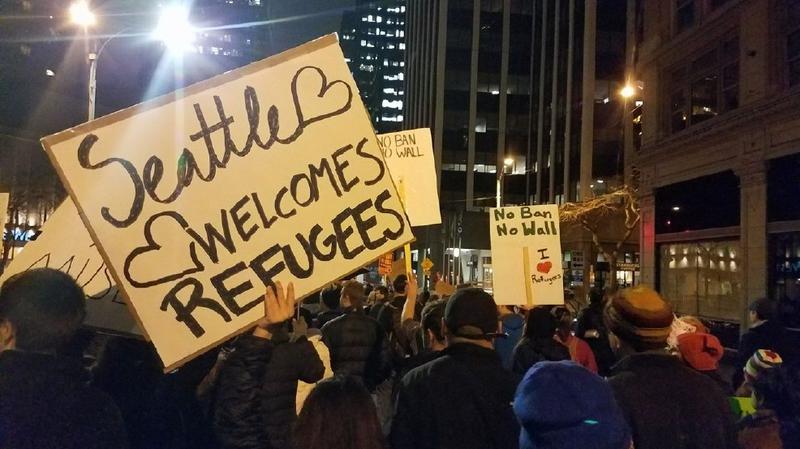 Seattle
WELCOMES
REFUGEES
NO BAN
NO WALL
No Ban
No Wall
I
Refugees